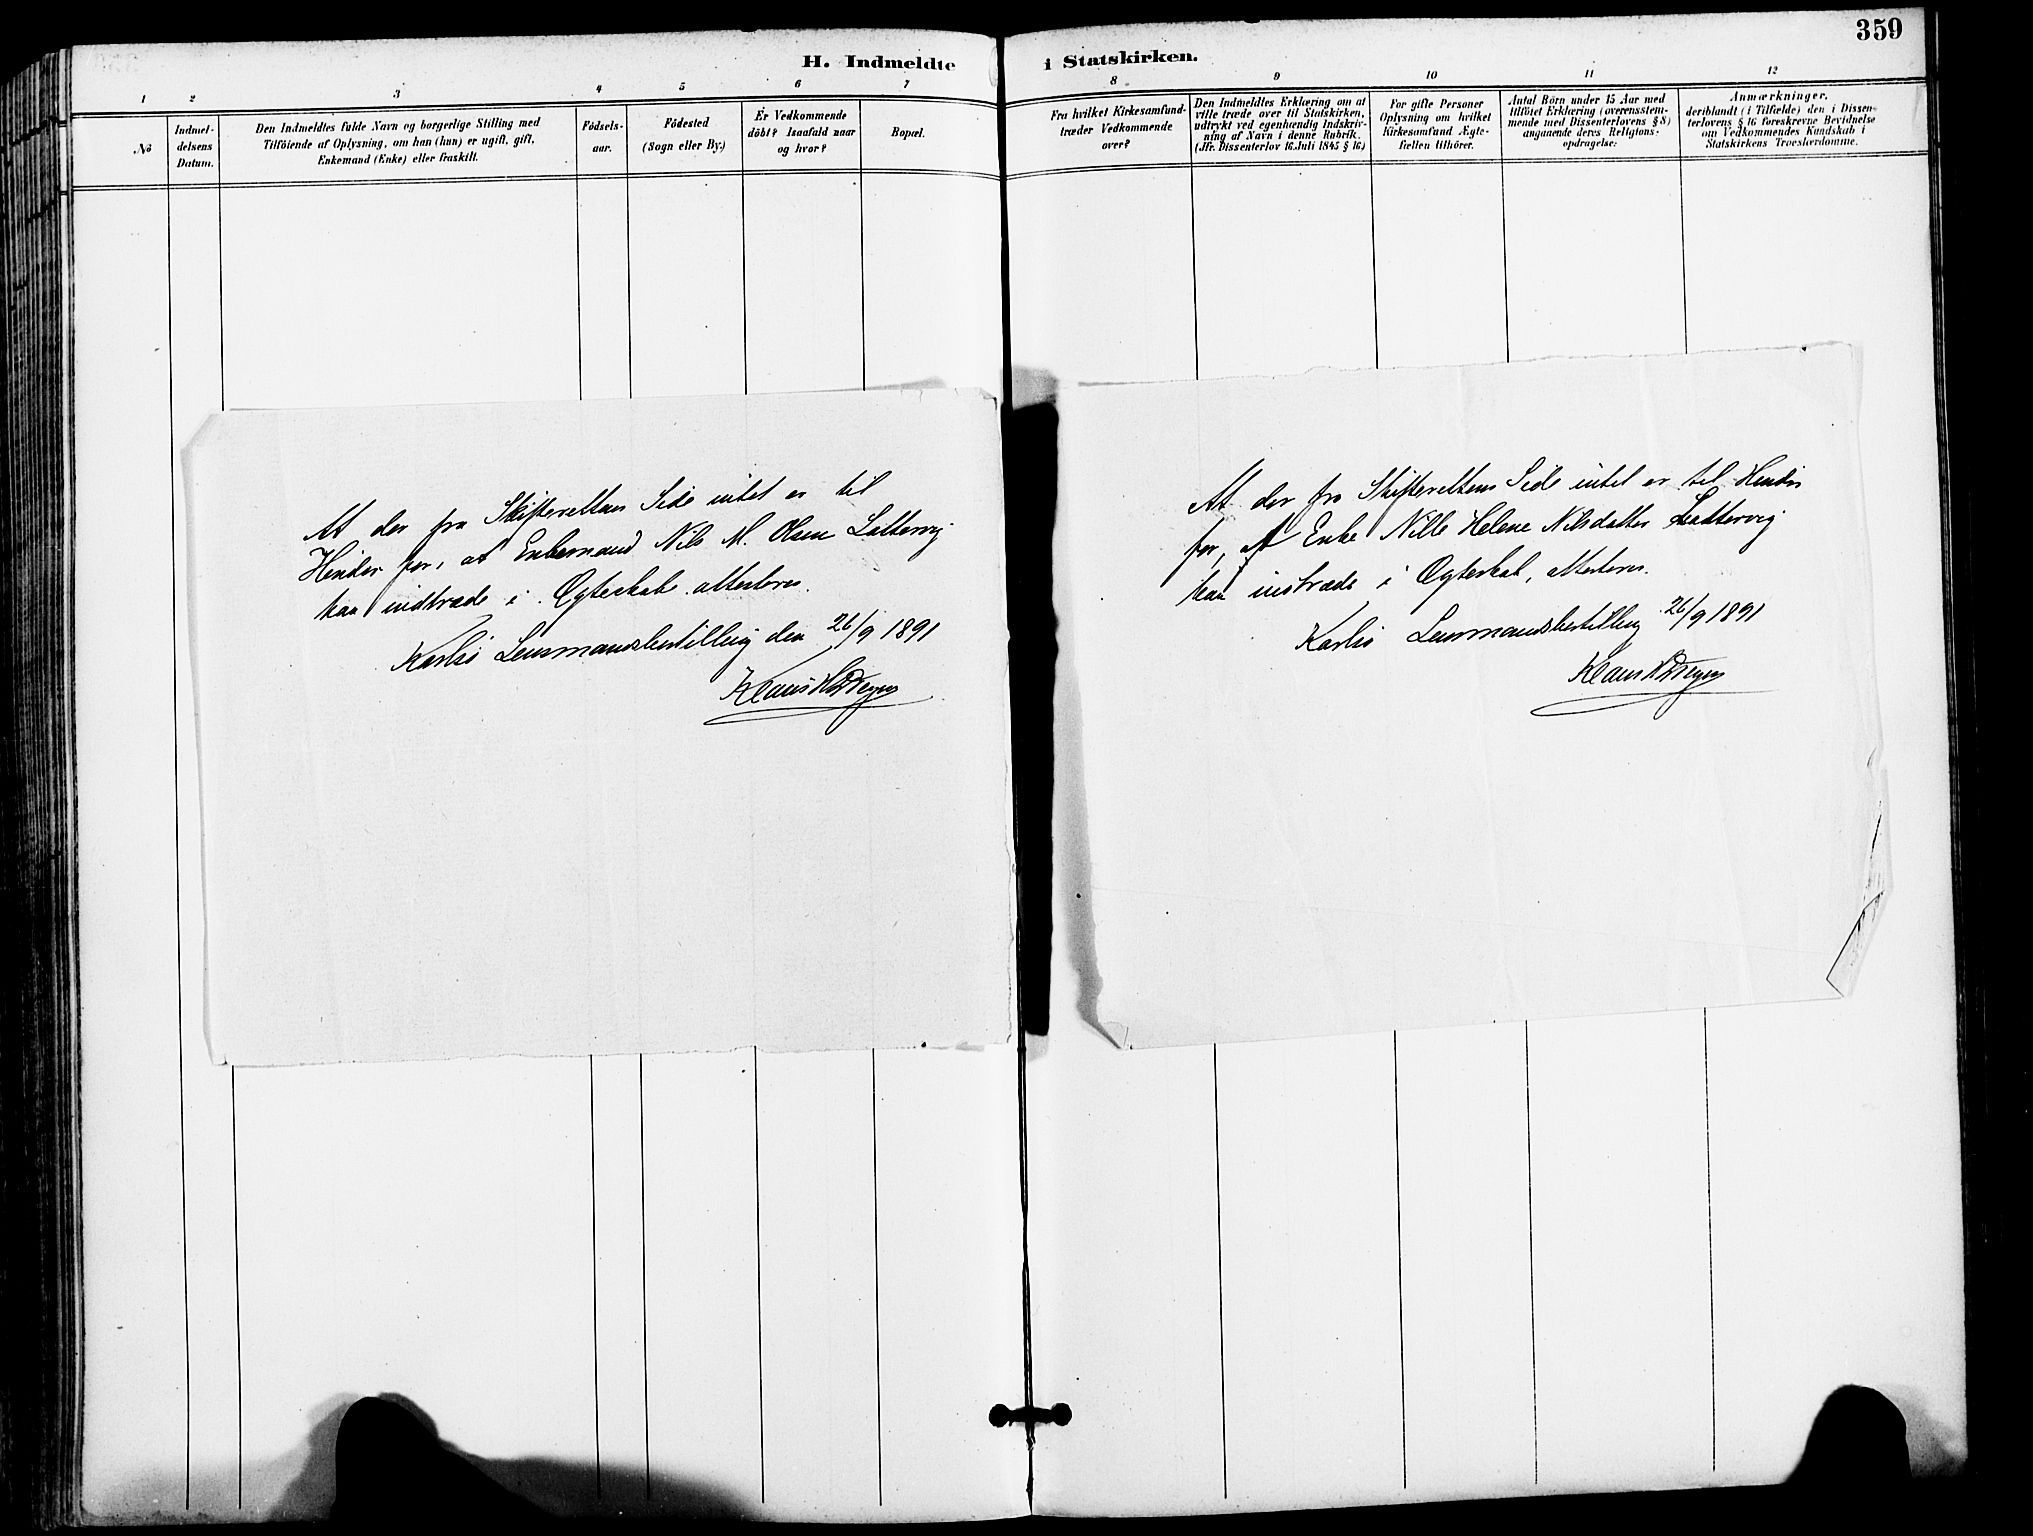 359
H. Indmeldte i Statskirken.
1 2 3 4 5 6 7 8 9 10 11 12
No
Indmel-
delsens
Datum.
Den Indmeldtes fulde Navn og borgerlige Stilling med
Tilföiende af Oplysning, om han (hun) er ugift, gift,
Enkemand (Enke) eller fraskilt.
Födsels-
aar.
Födested
(Sogn eller By.)
Er Vedkommende
döbt? Isaafald naar
og hvor?
Bopæl.
Fra hvilket Kirkesamfund-
træder Vedkommende
over?
Den Indmeldtes Erklæring om at
ville træde over til Statskirken,
udtrykt ved egenhændig Indskriv-
ning af Navn i denne Rubrik.
(Jfr. Dissenterlov 16. Juli 1845 § 16.)
For gifte Personer
Oplysning om hvilket
Kirkesamfund Ægte-
fællen tilhörer.
Antal Börn under 15 Aar med
tilföiet Erklæring (overensstem-
mende med Dissenterlovens § 8)
angaaende deres Religions-
opdragelse:
Anmærkninger,
deriblandt (i Tilfælde) den i Dissen-
terlovens § 16 foreskrevne Bevidnelse
om Vedkommendes Kundskab i
Statskirkens Troeslærdomme.
At der fra Skifterettens Side intet er til
Hinder for, at Enkemand Nils M. Olsen Lattervig
kan indtræde i Ægteskab attesteres.
Karlsö Lensmandsbestilling den 26/9 1891
At der fra Skifterettens Side intet er til Hinder
for, at Enke Nille Helene Nilsdatter Lattervig
kan indtræde i Ægteskab, attesteres.
Karlsö Lensmandsbestilling 26/9 1891